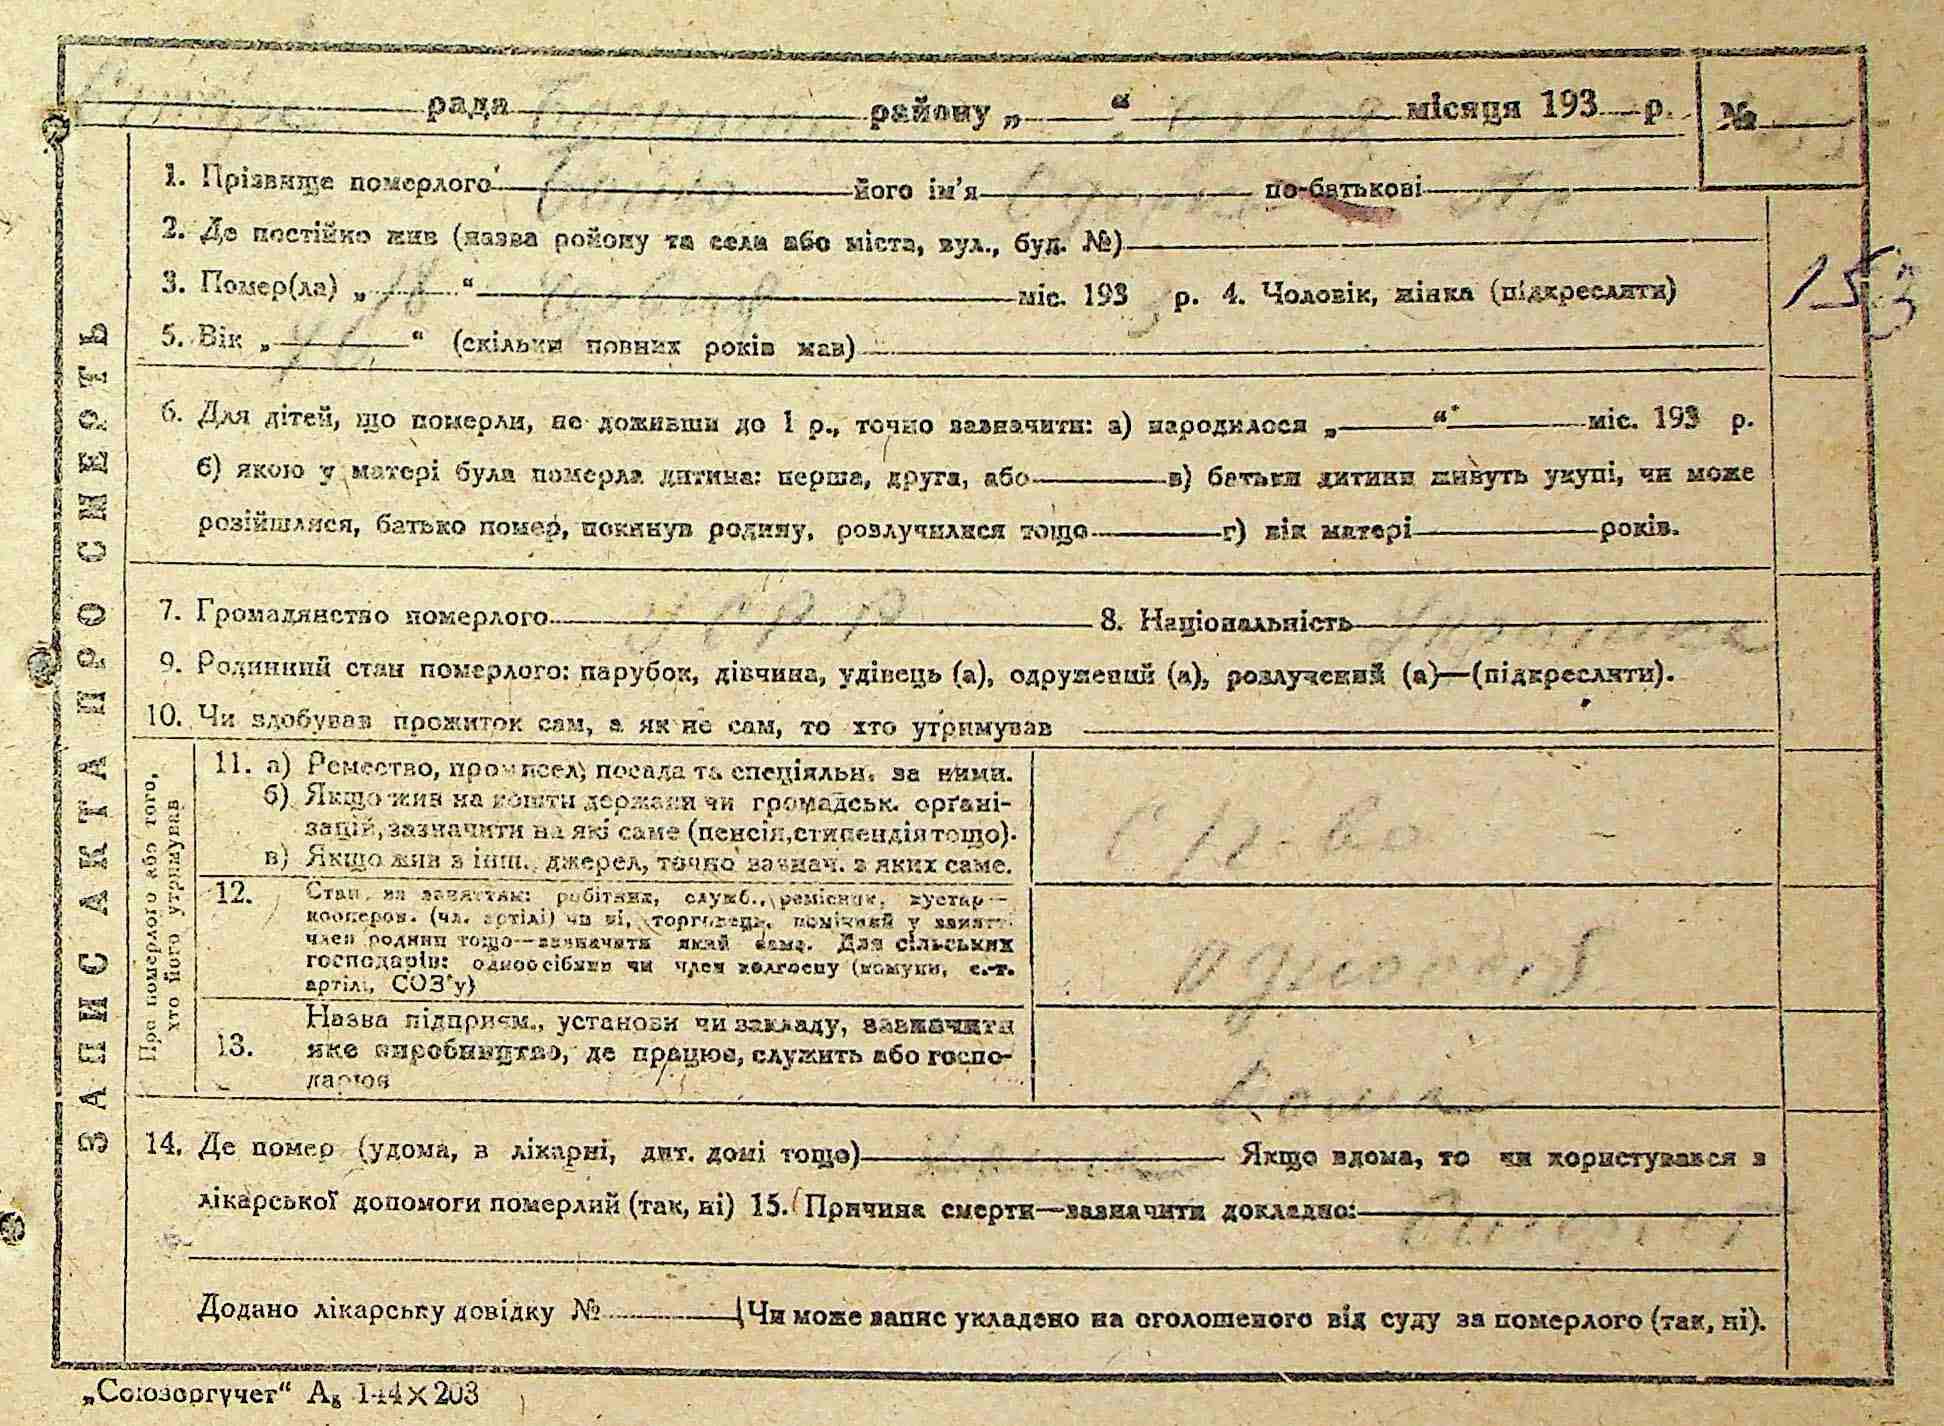 рада района „ “ місяця 193 р. №
1. Прізвище померлого його ім'я по-батькові
2. Де постійно жив (назва ройону та села або міста, вул., буд. №)
153
3. Помер(ла) „ 18 “ міс. 193 3 р. 4. Чоловік, жінка (підкреслити)
5. Вік „ “ (скільки повних років мав)
6. Для дітей, що померли, не доживши до 1 р., точно зазначити: а) народилося „ “ міс. 193 р.
б) якою у матері була померла дитина: перша, друга, або в) батьки дитини живуть укупі, чи може
розійшлися, батько помер, покинув родину, розлучилися тощо г) вік матері років.
7. Громадянство померлого УСРР 8. Національність
9. Родинний стан померлого: парубок, дівчина, удівець (а), одружений (а), розлучений (а)—(підкреслити).
10. Чи здобував прожиток сам, а як не сам, то хто утримував
ЗАПИС АКТА ПРО СМЕРТЬ
Про померлого або того,
хто його утримував
11. а) Ремество, промисел, посада та спеціяльн. за ними.
б) Якщо жив на кошти держави чи громадськ. орґані-
зацій, зазначити на які саме (пенсія, стипендія тощо).
в) Якщо жив з інш. джерел, точно зазнач. з яких саме.
12. Стан за заняттям: робітник, служб., ремісник, кустар—
кооперов. (чл. артілі) чи ні, торговець, помічний у занятті
член родини тощо—зазначити який саме. Для сільських
господарів: одноосібник чи член колгоспу (комуни, с.-г.
артілі, СОЗ'у)
одноосіб
13. Назва підприєм., установи чи закладу, зазначити
яке виробництво, де працює, служить або госпо-
дарює
дома
14. Де помер (удома, в лікарні, дит. домі тощо) Якщо вдома, то чи користувався з
лікарської допомоги померлий (так, ні) 15. Причина смерти—зазначити докладно:
Додано лікарську довідку № Чи може запис укладено на оголошеного від суду за померлого (так, ні).
„Союзоргучет“ А₅ 144×203